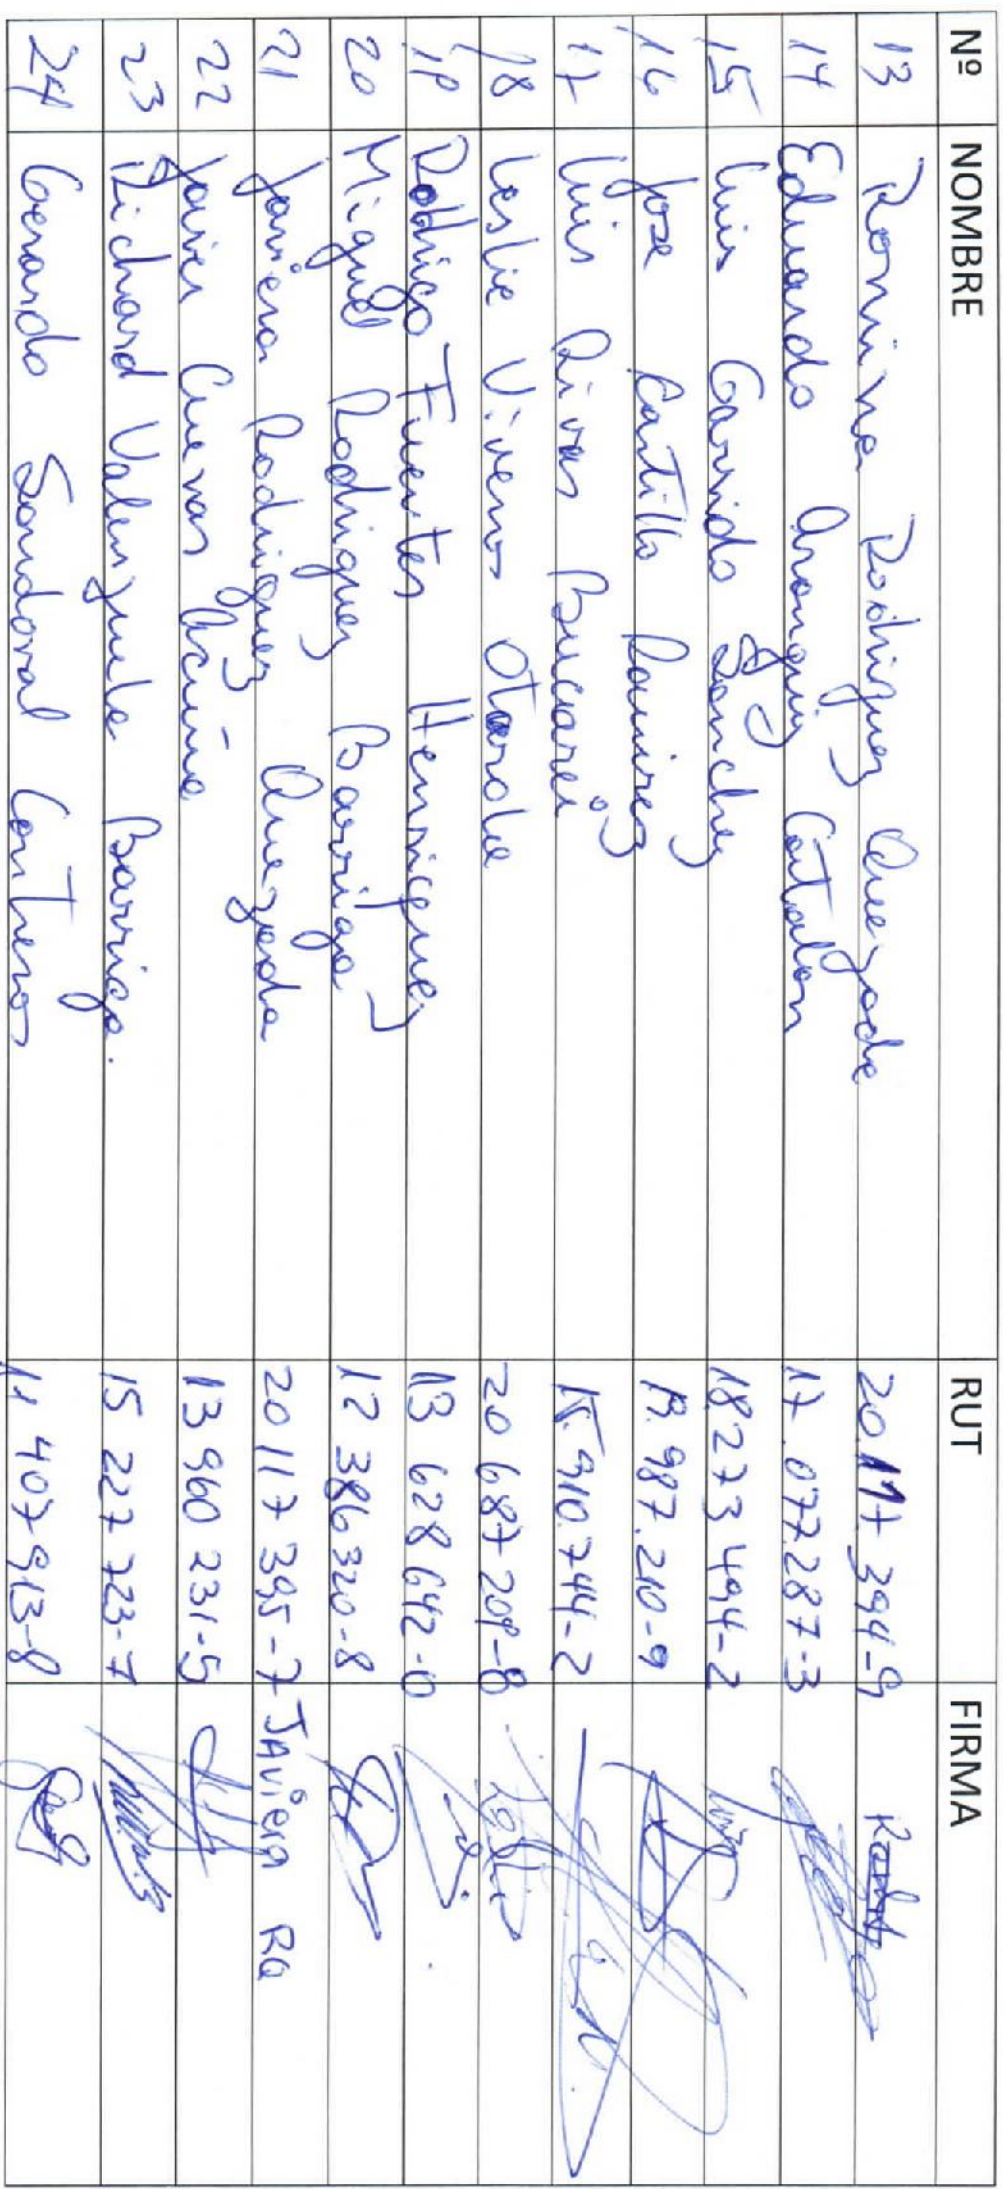 Nº NOMBRE RUT FIRMA
13 Romina Rodriguez Quezada 20.117.394-9
14 Eduardo Aranguiz Catalan 17.077.287-3
15 Luis Garrido Sanchez 18.273 494-2 Luis
16 Jose Cartillo Ramirez 987.210-9
17 Luis Rivas Bucarei 15.910.744-2
18 Leslie Viveros Otarola 20 687 209-8 Leslie
19 Rodrigo Fuentes Henriquez 13 628 642-0
20 Miguel Rodriguez Barriga 12 386 320-8
21 Javiera Rodriguez Quezada 20 117 395-7 JAviera Ro
22 Javier Cuevas Acuña 13 960 231-5
23 Richard Valenzuela Barriga. 15 227 723-7
24 Gerardo Sandoval Contreras 11 407 913-8